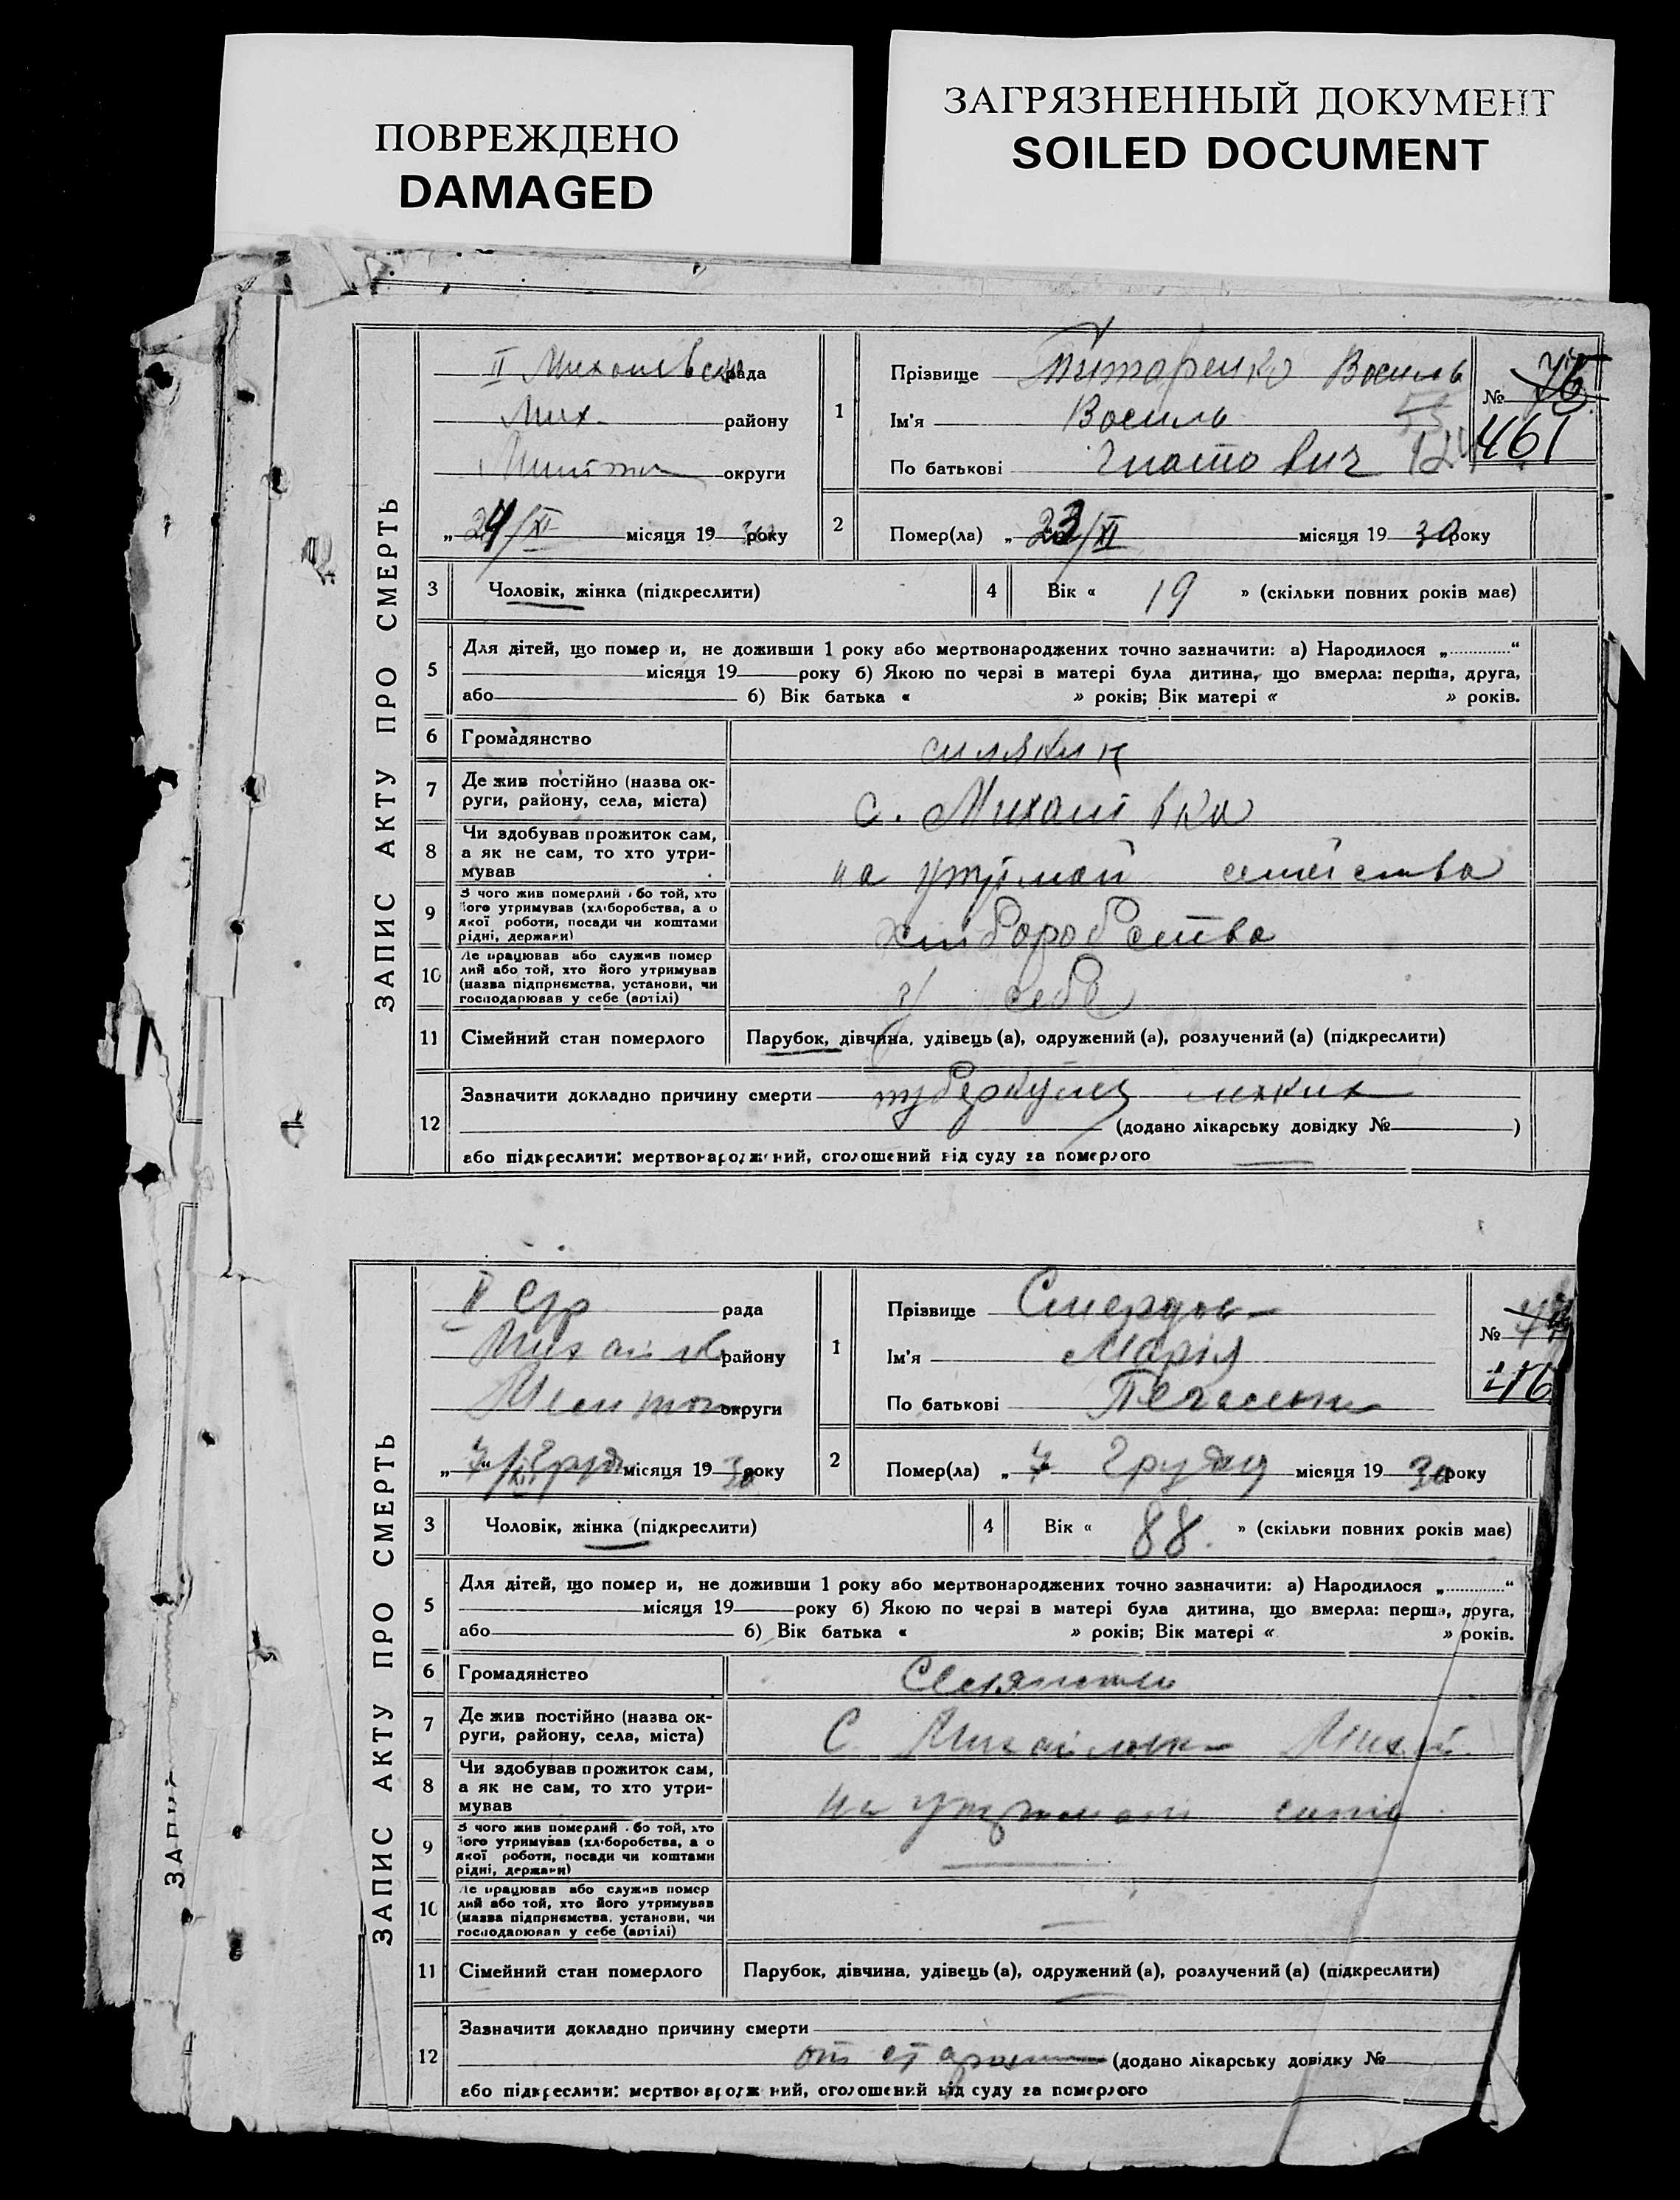 ПОВРЕЖДЕНО
DAMAGED
ЗАГРЯЗНЕННЫЙ ДОКУМЕНТ
SOILED DOCUMENT
ЗАПИС АКТУ ПРО СМЕРТЬ
II рада
Мих. району
округи
„ 24/XI місяця 19 30 року
1
Прізвище Титаренко Василь
Ім'я Василь
По батькові Гнатович
№ 76
461
2
Помер(ла) „ 23/XI місяця 19 30 року
3 Чоловік, жінка (підкреслити)
4 Вік « 19 » (скільки повних років має)
5 Для дітей, що помер и, не доживши 1 року або мертвонароджених точно зазначити: а) Народилося „............“
місяця 19 року б) Якою по черзі в матері була дитина, що вмерла: перша, друга,
або б) Вік батька « » років; Вік матері « » років.
6 Громадянство
7 Де жив постійно (назва ок-
руги, району, села, міста) с. Михайлівка
8 Чи здобував прожиток сам,
а як не сам, то хто утри-
мував на семейства
9 З чого жив померлий або той, хто
його утримував (хліборобства, а о
якої роботи, посади чи коштами
рідні, держави) хліборобство
10 Де працював або служив помер
лий або той, хто його утримував
(назва підприємства, установи, чи
господарював у себе (артілі) у себе
11 Сімейний стан померлого Парубок, дівчина, удівець (а), одружений (а), розлучений (а) (підкреслити)
12 Зазначити докладно причину смерти туберкульоз
(додано лікарську довідку № )
або підкреслити: мертвонароджений, оголошений від суду за померлого
ЗАПИС АКТУ ПРО СМЕРТЬ
II рада
району
округи
„ 7 “ місяця 19 30 року
1
Прізвище
Ім'я Марія
По батькові
№
46
2
Помер(ла) „ 7 Грудня місяця 19 30 року
3 Чоловік, жінка (підкреслити)
4 Вік « 88. » (скільки повних років має)
5 Для дітей, що помер и, не доживши 1 року або мертвонароджених точно зазначити: а) Народилося „............“
місяця 19 року б) Якою по черзі в матері була дитина, що вмерла: перша, друга,
або б) Вік батька « » років; Вік матері « » років.
6 Громадянство
7 Де жив постійно (назва ок-
руги, району, села, міста) С.
8 Чи здобував прожиток сам,
а як не сам, то хто утри-
мував на
9 З чого жив померлий або той, хто
його утримував (хліборобства, а о
якої роботи, посади чи коштами
рідні, держави)
10 Де працював або служив помер
лий або той, хто його утримував
(назва підприємства, установи, чи
господарював у себе (артілі)
11 Сімейний стан померлого Парубок, дівчина, удівець (а), одружений (а), розлучений (а) (підкреслити)
12 Зазначити докладно причину смерти
от (додано лікарську довідку №
або підкреслити: мертвонароджений, оголошений від суду за померлого